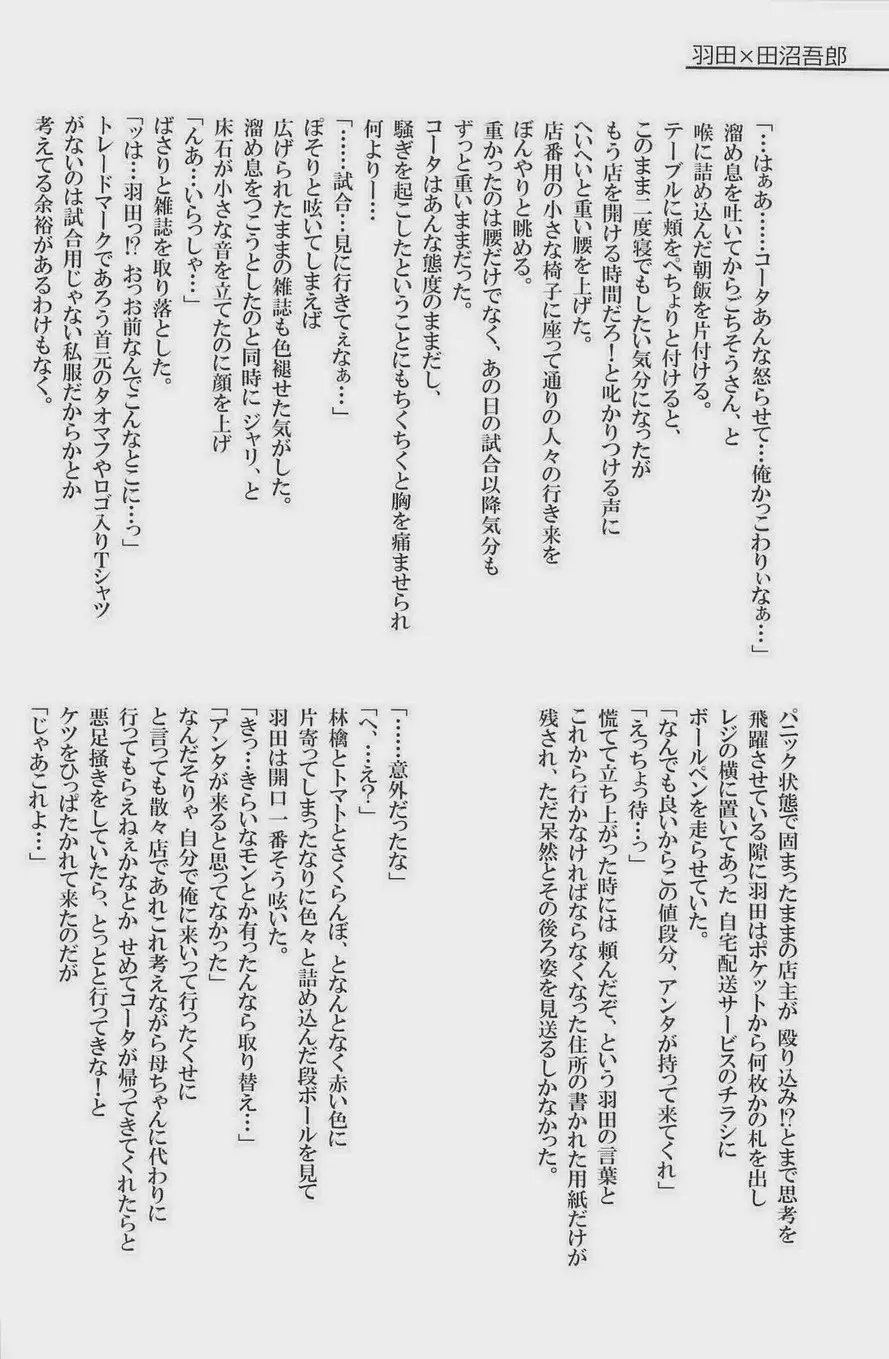 羽田×田沼吾郎
「…はぁあ……コータあんな怒らせて…俺かっこわりぃなぁ…」
溜め息を吐いてからごちそうさん、と
喉に詰め込んだ朝飯を片付ける。
テーブルに頬をぺちょりと付けると、
このまま二度寝でもしたい気分になったが
もう店を開ける時間だろ!と叱かりつける声に
へいへいと重い腰を上げた。
店番用の小さな椅子に座って通りの人々の行き来を
ぼんやりと眺める。
重かったのは腰だけでなく、あの日の試合以降気分も
ずっと重いままだった。
コータはあんな態度のままだし、
騒ぎを起こしたということにもちくちくと胸を痛ませられ
何よりー…
「……試合…見に行きてぇなぁ…」
ぽそりと呟いてしまえば
広げられたままの雑誌も色褪せた気がした。
溜め息をつこうとしたのと同時に ジャリ、と
床石が小さな音を立てたのに顔を上げ
「んあ…いらっしゃ…」
ばさりと雑誌を取り落とした。
「ッは…羽田っ!? おっお前なんでこんなとこに…っ」
トレードマークであろう首元のタオマフやロゴ入りTシャツ
がないのは試合用じゃない私服だからかとか
考えてる余裕があるわけもなく。
パニック状態で固まったままの店主が 殴り込み!?とまで思考を
飛躍させている隙に羽田はポケットから何枚かの札を出し
レジの横に置いてあった 自宅配送サービスのチラシに
ボールペンを走らせていた。
「なんでも良いからこの値段分、アンタが持って来てくれ」
「えっちょっ待…っ」
慌てて立ち上がった時には 頼んだぞ、という羽田の言葉と
これから行かなければならなくなった住所の書かれた用紙だけが
残され、ただ呆然とその後ろ姿を見送るしかなかった。
「……意外だったな」
「へ、…え?」
林檎とトマトとさくらんぼ、となんとなく赤い色に
片寄ってしまったなりに色々と詰め込んだ段ボールを見て
羽田は開口一番そう呟いた。
「きっ…きらいなモンとか有ったんなら取り替え…」
「アンタが来ると思ってなかった」
なんだそりゃ 自分で俺に来いって行ったくせに
と言っても散々店であれこれ考えながら母ちゃんに代わりに
行ってもらえねぇかなとか せめてコータが帰ってきてくれたらと
悪足掻きをしていたら、とっとと行ってきな!と
ケツをひっぱたかれて来たのだが
「じゃあこれよ…」